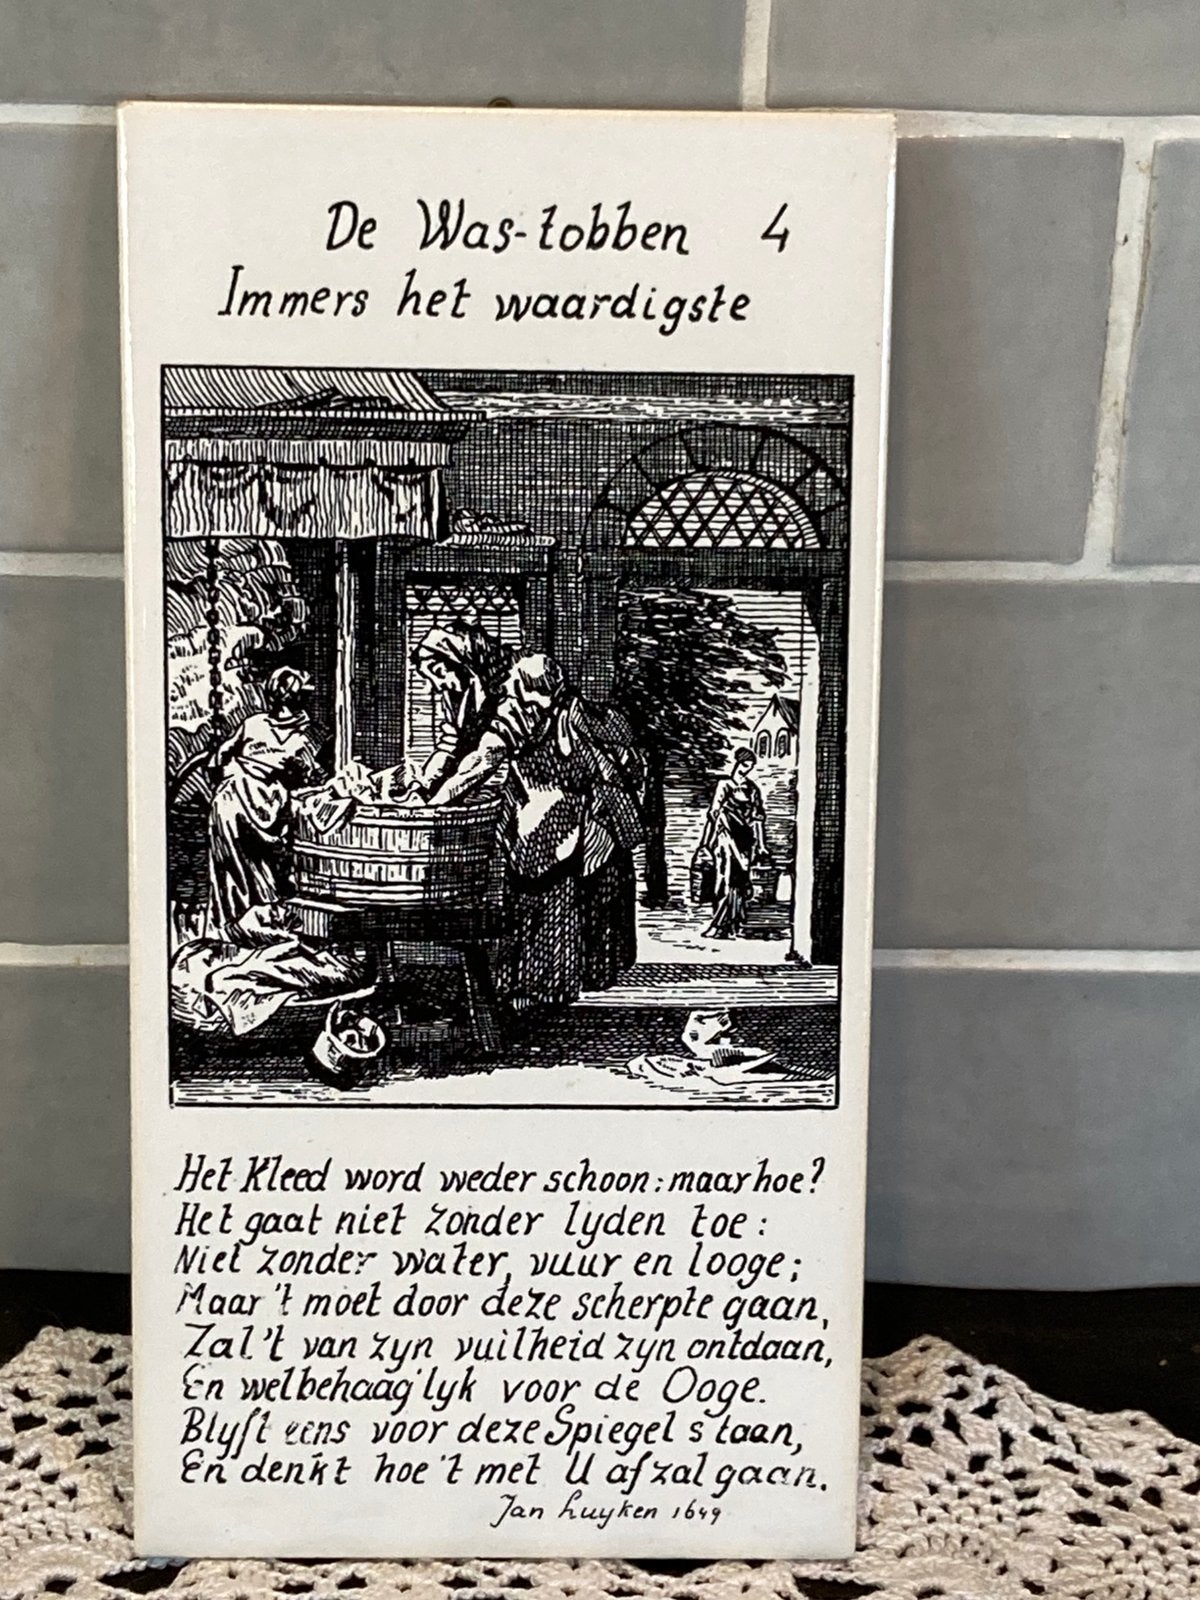 De Was-tobben 4
Immers het waardigste
Het Kleed word weder schoon: maar hoe?
Het gaat niet zonder lyden toe:
Niet zonder water, vuur en looge;
Maar 't moet door deze scherpte gaan,
Zal 't van zyn vuilheid zyn ontdaan,
En welbehaag'lyk voor de Ooge.
Blyft eens voor deze Spiegel staan,
En denkt hoe 't met U af zal gaan.
Jan Luyken 1649